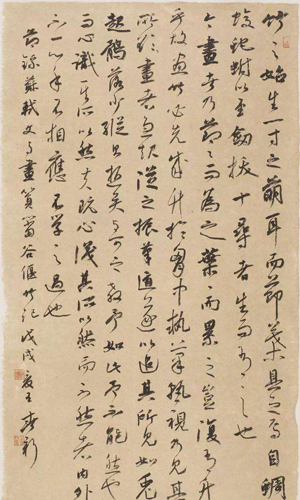 竹之始生一寸之萌耳而節葉具焉自蜩
腹蛇蚹以至劍拔十尋者生而有之也
今畫者乃節節而為之葉葉而累之豈復有竹
乎故畫竹必先成竹於胸中執筆熟視乃見其
所欲畫者急起從之振筆直遂以追其所見如兔
起鶻落少縱則逝矣與可之教予如此予不能然也
而心識其所以然夫既心識其所以然而不能然者內外
不一心手不相應不學之過也
節錄蘇軾文與可畫篔簹谷偃竹記戊戌夏王